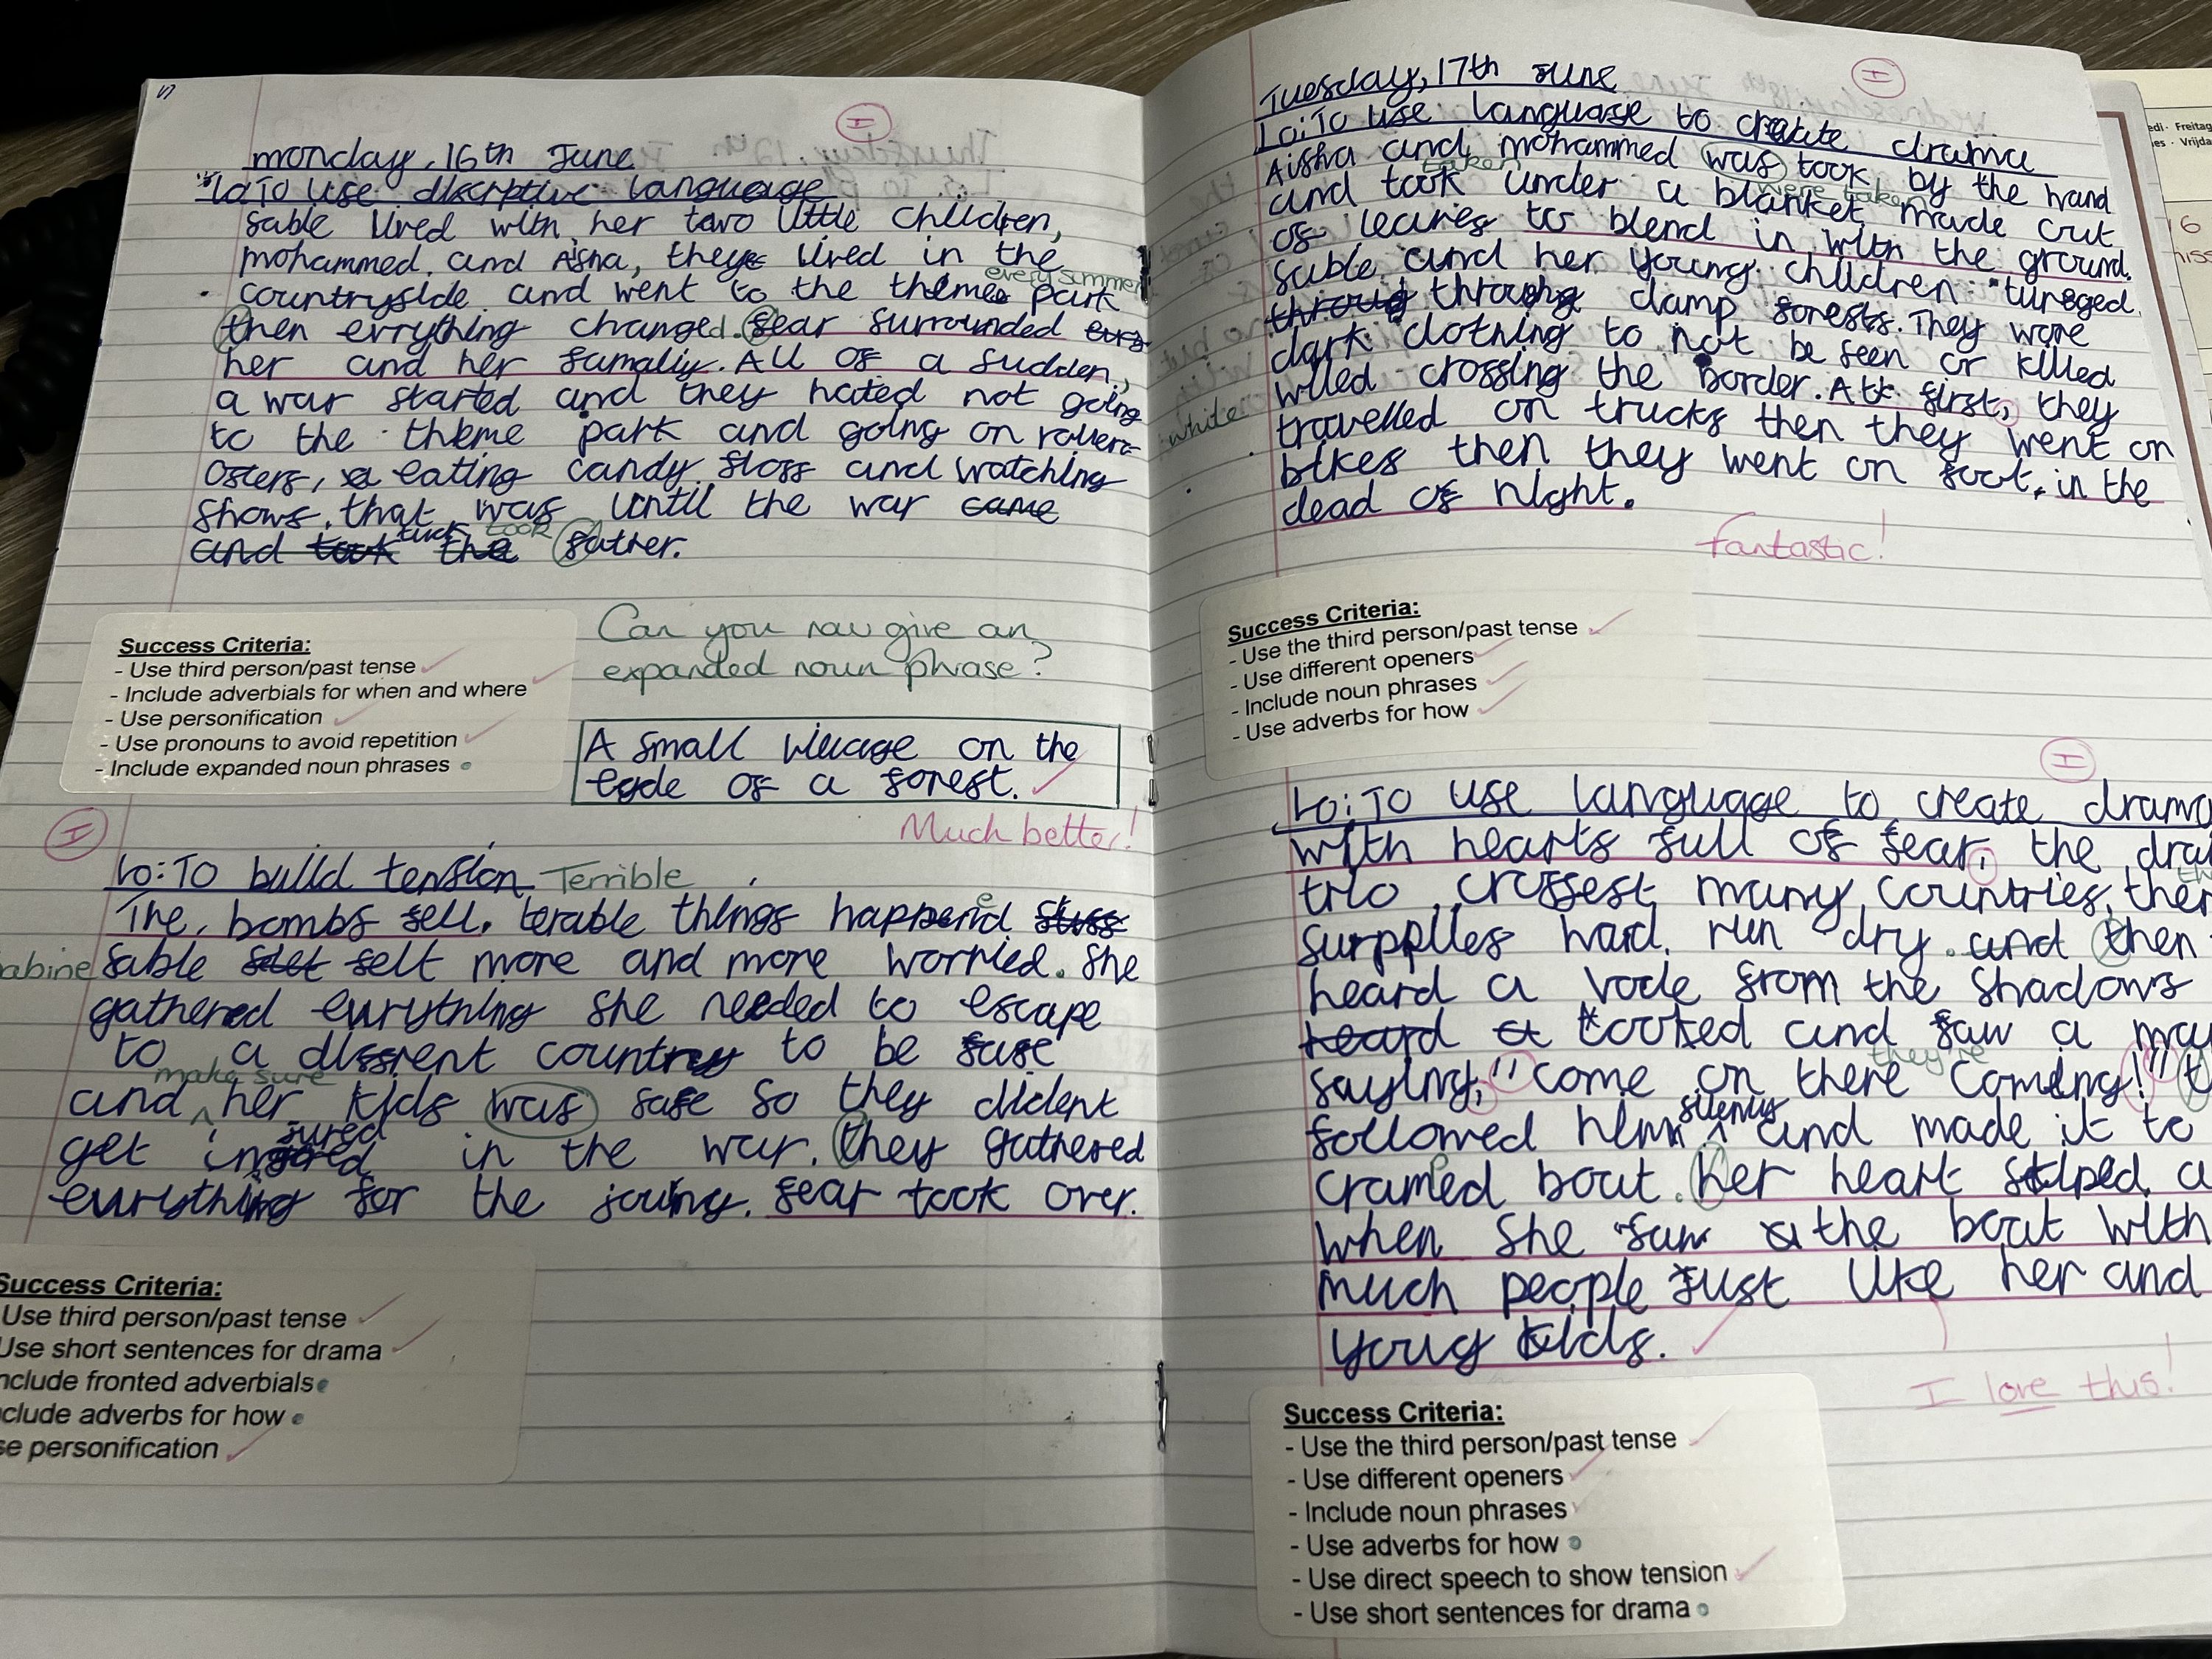 monday, 16th June
Lo To use discrptive language
sable lived with her two little children,
mohammed, and Aisha, they lived in the
every summer
countryside and went to the theme park
then errything changed. fear surrounded
her and her famaliy. All of a sudden,
a war started and they hated not going
to the theme park and going on rollerc
osters, eating candy floss and watching
shows. that was until the war came
took
and took the father.
Success Criteria:
- Use third person/past tense
- Include adverbials for when and where
- Use personification
- Use pronouns to avoid repetition
- Include expanded noun phrases
Can you now give an
expanded noun phrase?
A small villiage on the
egde of a forest.
Much better!
I
Lo: To build tension Terrible
The bombs fell. terable things happend
abine sable felt more and more worried. She
gathered eurything she needed to escape
to a diffrent country to be safe
make sure
and her kids was safe so they dident
jured
get in in the war. they gathered
eurything for the jouiny. fear took over.
Success Criteria:
Use third person/past tense
Use short sentences for drama
nclude fronted adverbials
clude adverbs for how
se personification
I
Tuesday, 17th June
Lo: To use language to create drama
Aisha and mohammed was took by the hand
taken
were taken
and took under a blanket made out
of leaves to blend in with the ground.
sable and her young children
through damp forests. They wore
dark clothing to not be seen or killed
wlled crossing the border. At first, they
white
travelled on trucks then they went on
bikes then they went on foot, in the
dead of night.
fantastic!
Success Criteria:
- Use the third person/past tense
- Use different openers
- Include noun phrases
- Use adverbs for how
I
Lo: To use language to create drama
with hearts full of fear, the dra
trio crossest many countries, ther
surpplies had run dry. and then
heard a voice from the shadows
heard a looked and saw a ma
they're
saying, "come on there coming!" t
silenly
followed him and made it to
cramed boat. her heart a
when she saw the boat with
much people just like her and
youg kids.
I love this!
Success Criteria:
- Use the third person/past tense
- Use different openers
- Include noun phrases
- Use adverbs for how
- Use direct speech to show tension
- Use short sentences for drama